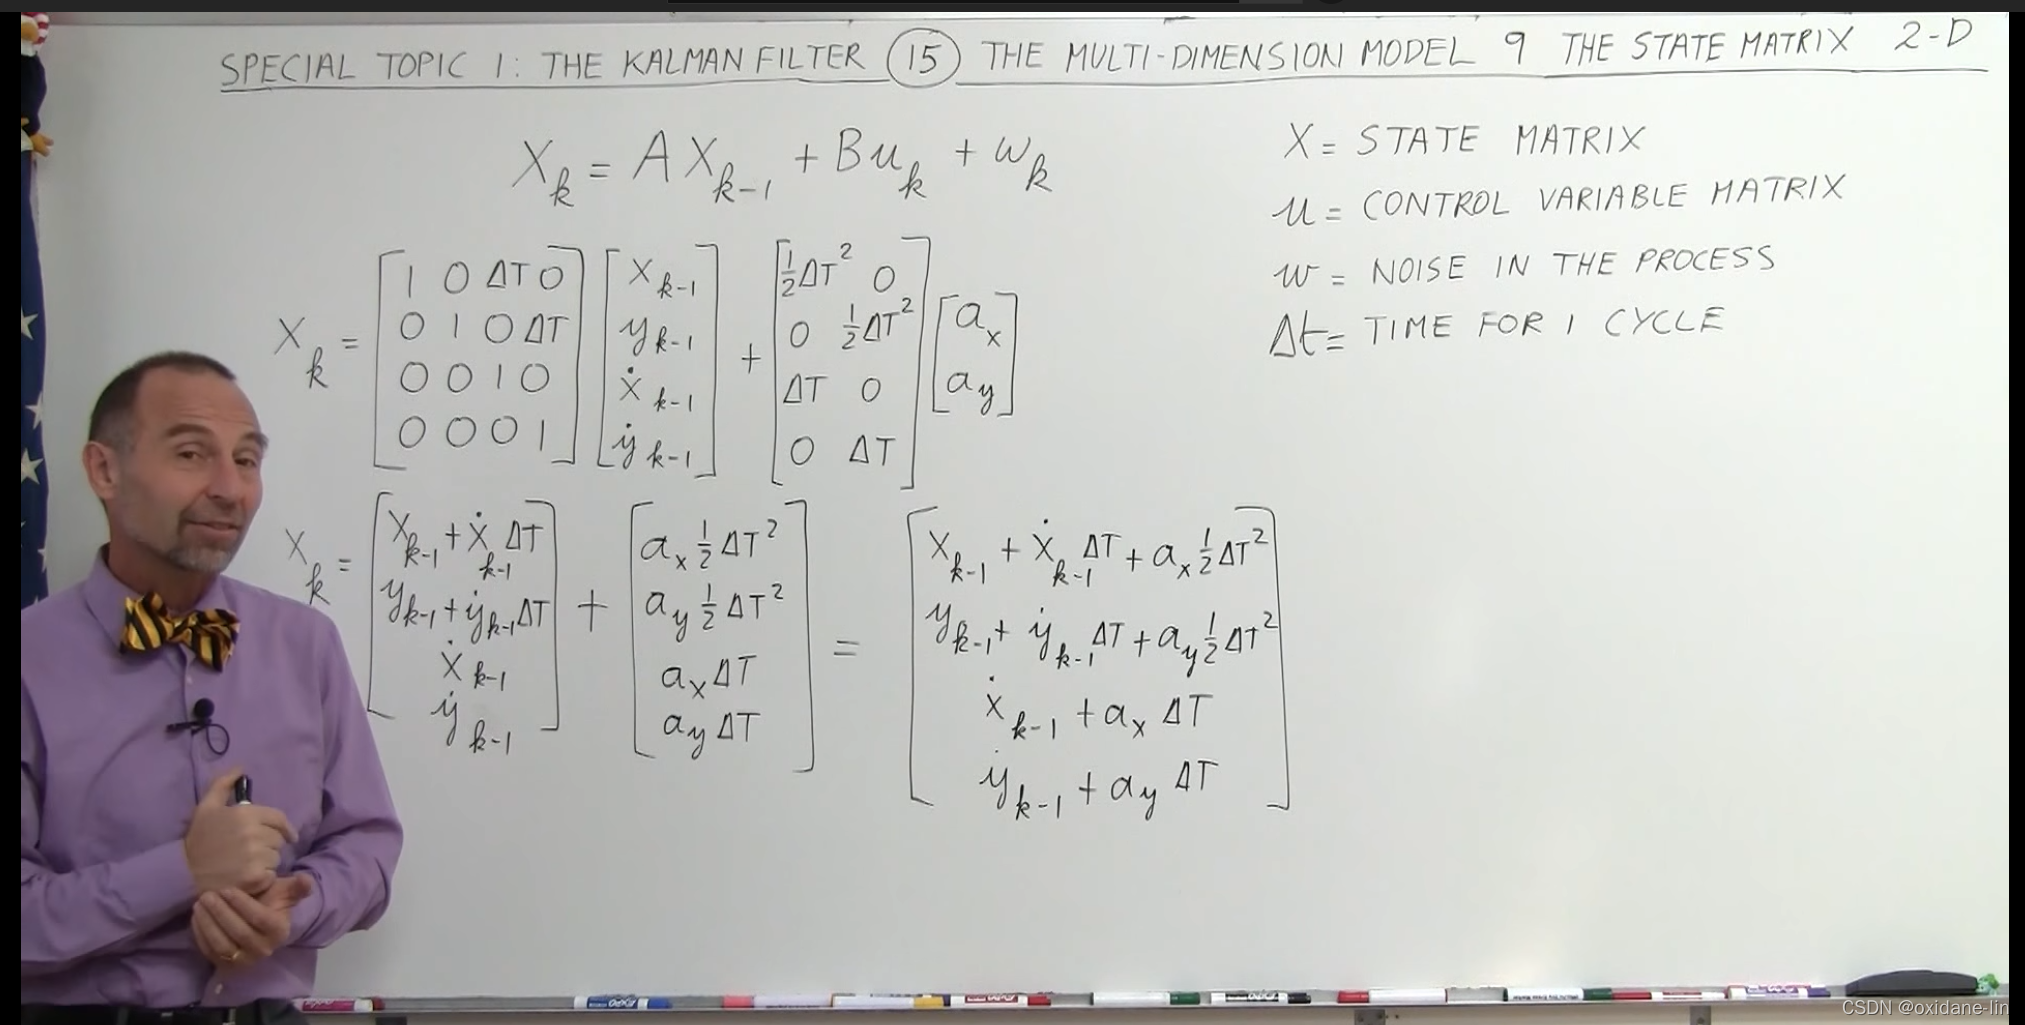 SPECIAL TOPIC 1: THE KALMAN FILTER 15 THE MULTI-DIMENSION MODEL 9 THE STATE MATRIX 2-D
X_k = A X_{k-1} + B u_k + w_k
X = STATE MATRIX
u = CONTROL VARIABLE MATRIX
w = NOISE IN THE PROCESS
Δt = TIME FOR 1 CYCLE
X_k = [1 0 ΔT 0; 0 1 0 ΔT; 0 0 1 0; 0 0 0 1] [x_{k-1}; y_{k-1}; ẋ_{k-1}; ẏ_{k-1}] + [½ΔT² 0; 0 ½ΔT²; ΔT 0; 0 ΔT] [a_x; a_y]
X_k = [x_{k-1} + ẋ_{k-1} ΔT; y_{k-1} + ẏ_{k-1} ΔT; ẋ_{k-1}; ẏ_{k-1}] + [a_x ½ ΔT²; a_y ½ ΔT²; a_x ΔT; a_y ΔT] = [x_{k-1} + ẋ_{k-1} ΔT + a_x ½ ΔT²; y_{k-1} + ẏ_{k-1} ΔT + a_y ½ ΔT²; ẋ_{k-1} + a_x ΔT; ẏ_{k-1} + a_y ΔT]
CSDN @oxidane-lin